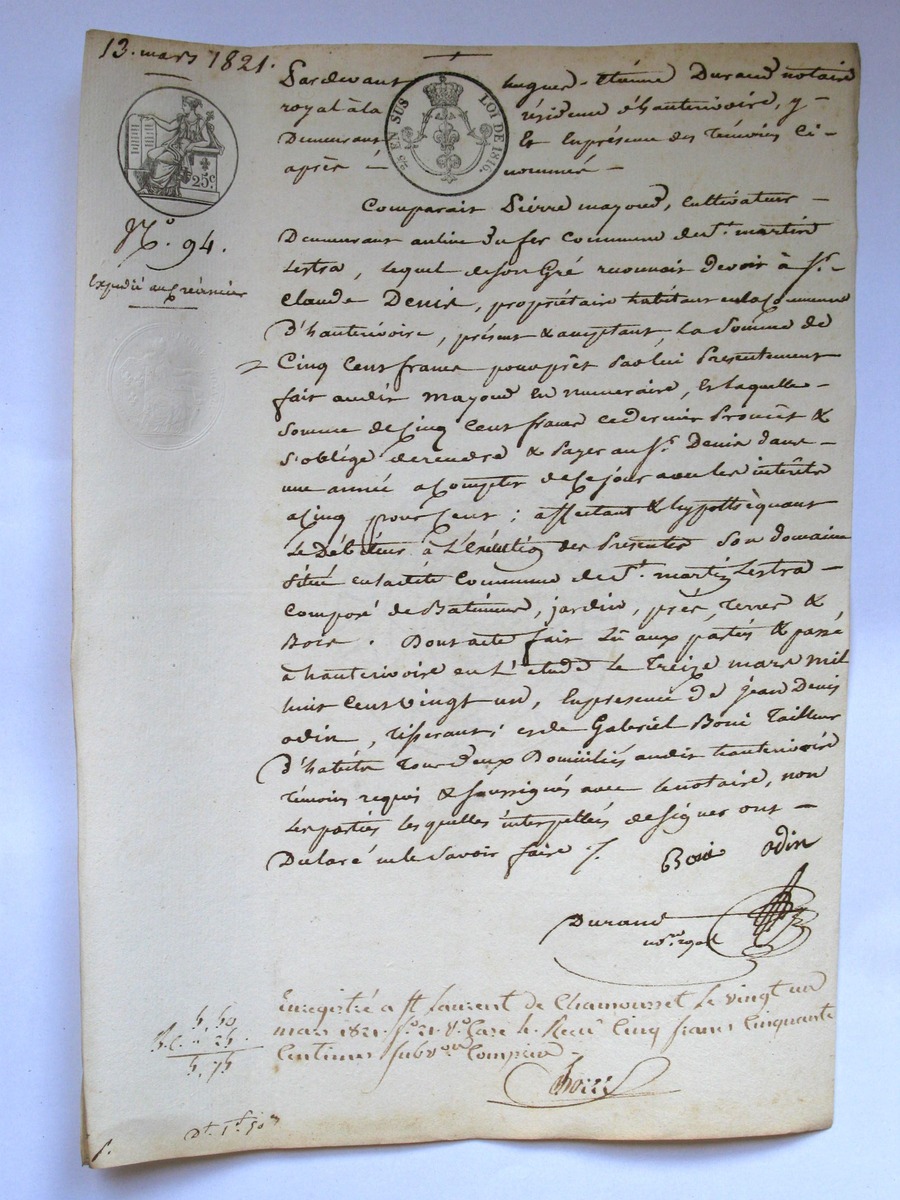 13. mars 1821.
Pardevant hugues-étienne Durand notaire
royal à la résidence d'hauterivoire, y-
Demeurant Et En présence des Témoins Ci-
après - nommés -
25 EN SUS LOI DE 1816.
25c.
N.° 94.
Expédié au créancier
Comparait Pierre mayoud, Cultivateur -
Demeurant au lieu du fer Commune de St. martin
Lestra, lequel de son Gré reconnait devoir à Sr.-
Claude Denis, propriétaire habitant en la Commune
D'hauterivoire, présent & acceptant, la Somme de
Cinq Cent francs pour prêt Par lui Presentement
fait audit mayoud En numeraire, Et laquelle -
Somme de Cinq Cent francs ce dernier Promet &
S'oblige de rendre & Payer au Sr. Denis dans -
une année a Compter de Ce jour avec les intérêts
a Cinq pour Cent ; affectant & hypothèquant
Le Débiteur à L'Exécution des Presentes Son domaine
Situé en ladite Commune de St. martin Lestra -
Composé de Batimens, jardin, prés, Terres &
Bois. Dont acte fait Lû aux parties & passé
à hauterivoire en L'étude Le Treize mars mil
huit Cent vingt un, En présence de jean Denis
odin, Tisserant, et de Gabriel Boni Tailleur
D'habits Tous deux Domiciliés audit hauterivoire
Témoins requis & soussignés avec le notaire, non
Les parties lesquelles interpellées de signer ont -
Déclaré ne le Savoir faire ./.
Boni odin
Durand
no.re royal
Enregistré a St Laurent de Chamousset Le vingt un
mars 1821. f.° 21. V.° Case 4. Recu Cinq francs Cinquante
Centimes Subv.on Comprise -
5, 50
25
5, 75